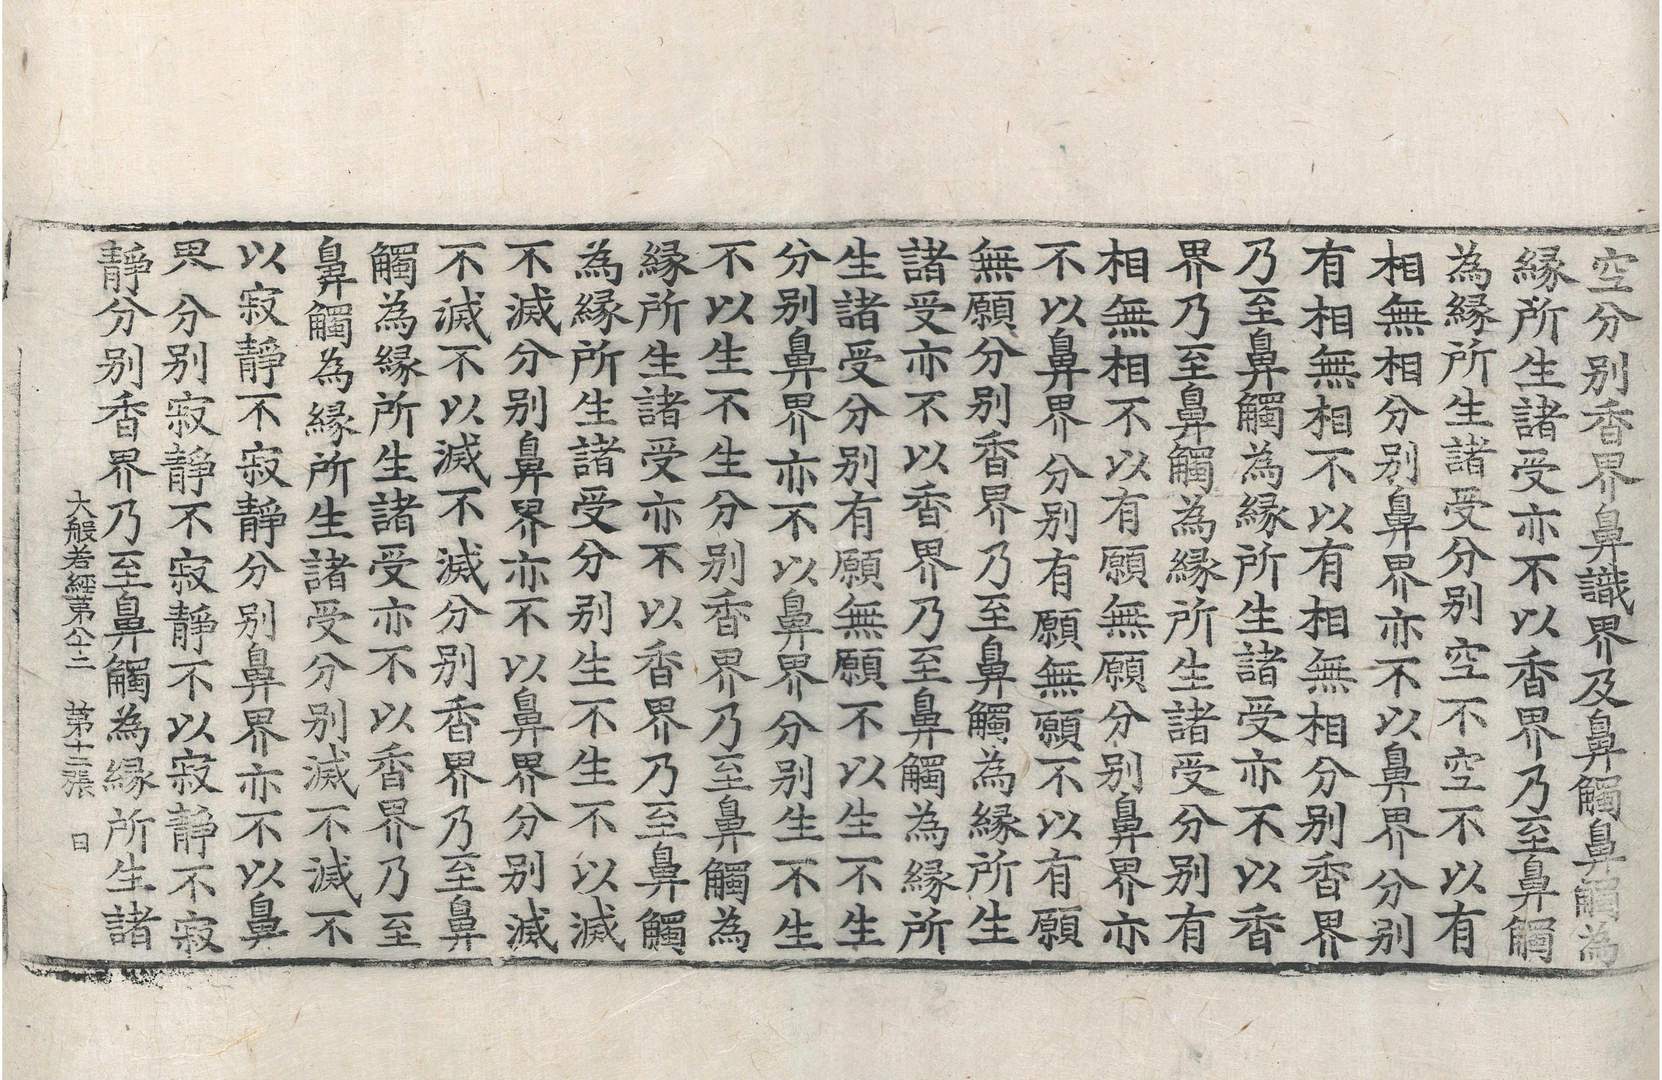 空分别香界鼻識界及鼻觸鼻觸為
縁所生諸受亦不以香界乃至鼻觸
為縁所生諸受分别空不空不以有
相無相分别鼻界亦不以鼻界分别
有相無相不以有相無相分别香界
乃至鼻觸為縁所生諸受亦不以香
界乃至鼻觸為縁所生諸受分别有
相無相不以有願無願分别鼻界亦
不以鼻界分别有願無願不以有願
無願分别香界乃至鼻觸為縁所生
諸受亦不以香界乃至鼻觸為縁所
生諸受分别有願無願不以生不生
分别鼻界亦不以鼻界分别生不生
不以生不生分别香界乃至鼻觸為
縁所生諸受亦不以香界乃至鼻觸
為縁所生諸受分别生不生不以滅
不滅分别鼻界亦不以鼻界分别滅
不滅不以滅不滅分别香界乃至鼻
觸為縁所生諸受亦不以香界乃至
鼻觸為縁所生諸受分别滅不滅不
以寂靜不寂靜分别鼻界亦不以鼻
界分别寂靜不寂靜不以寂靜不寂
靜分别香界乃至鼻觸為縁所生諸
大般若經第八十二 第十二張 日